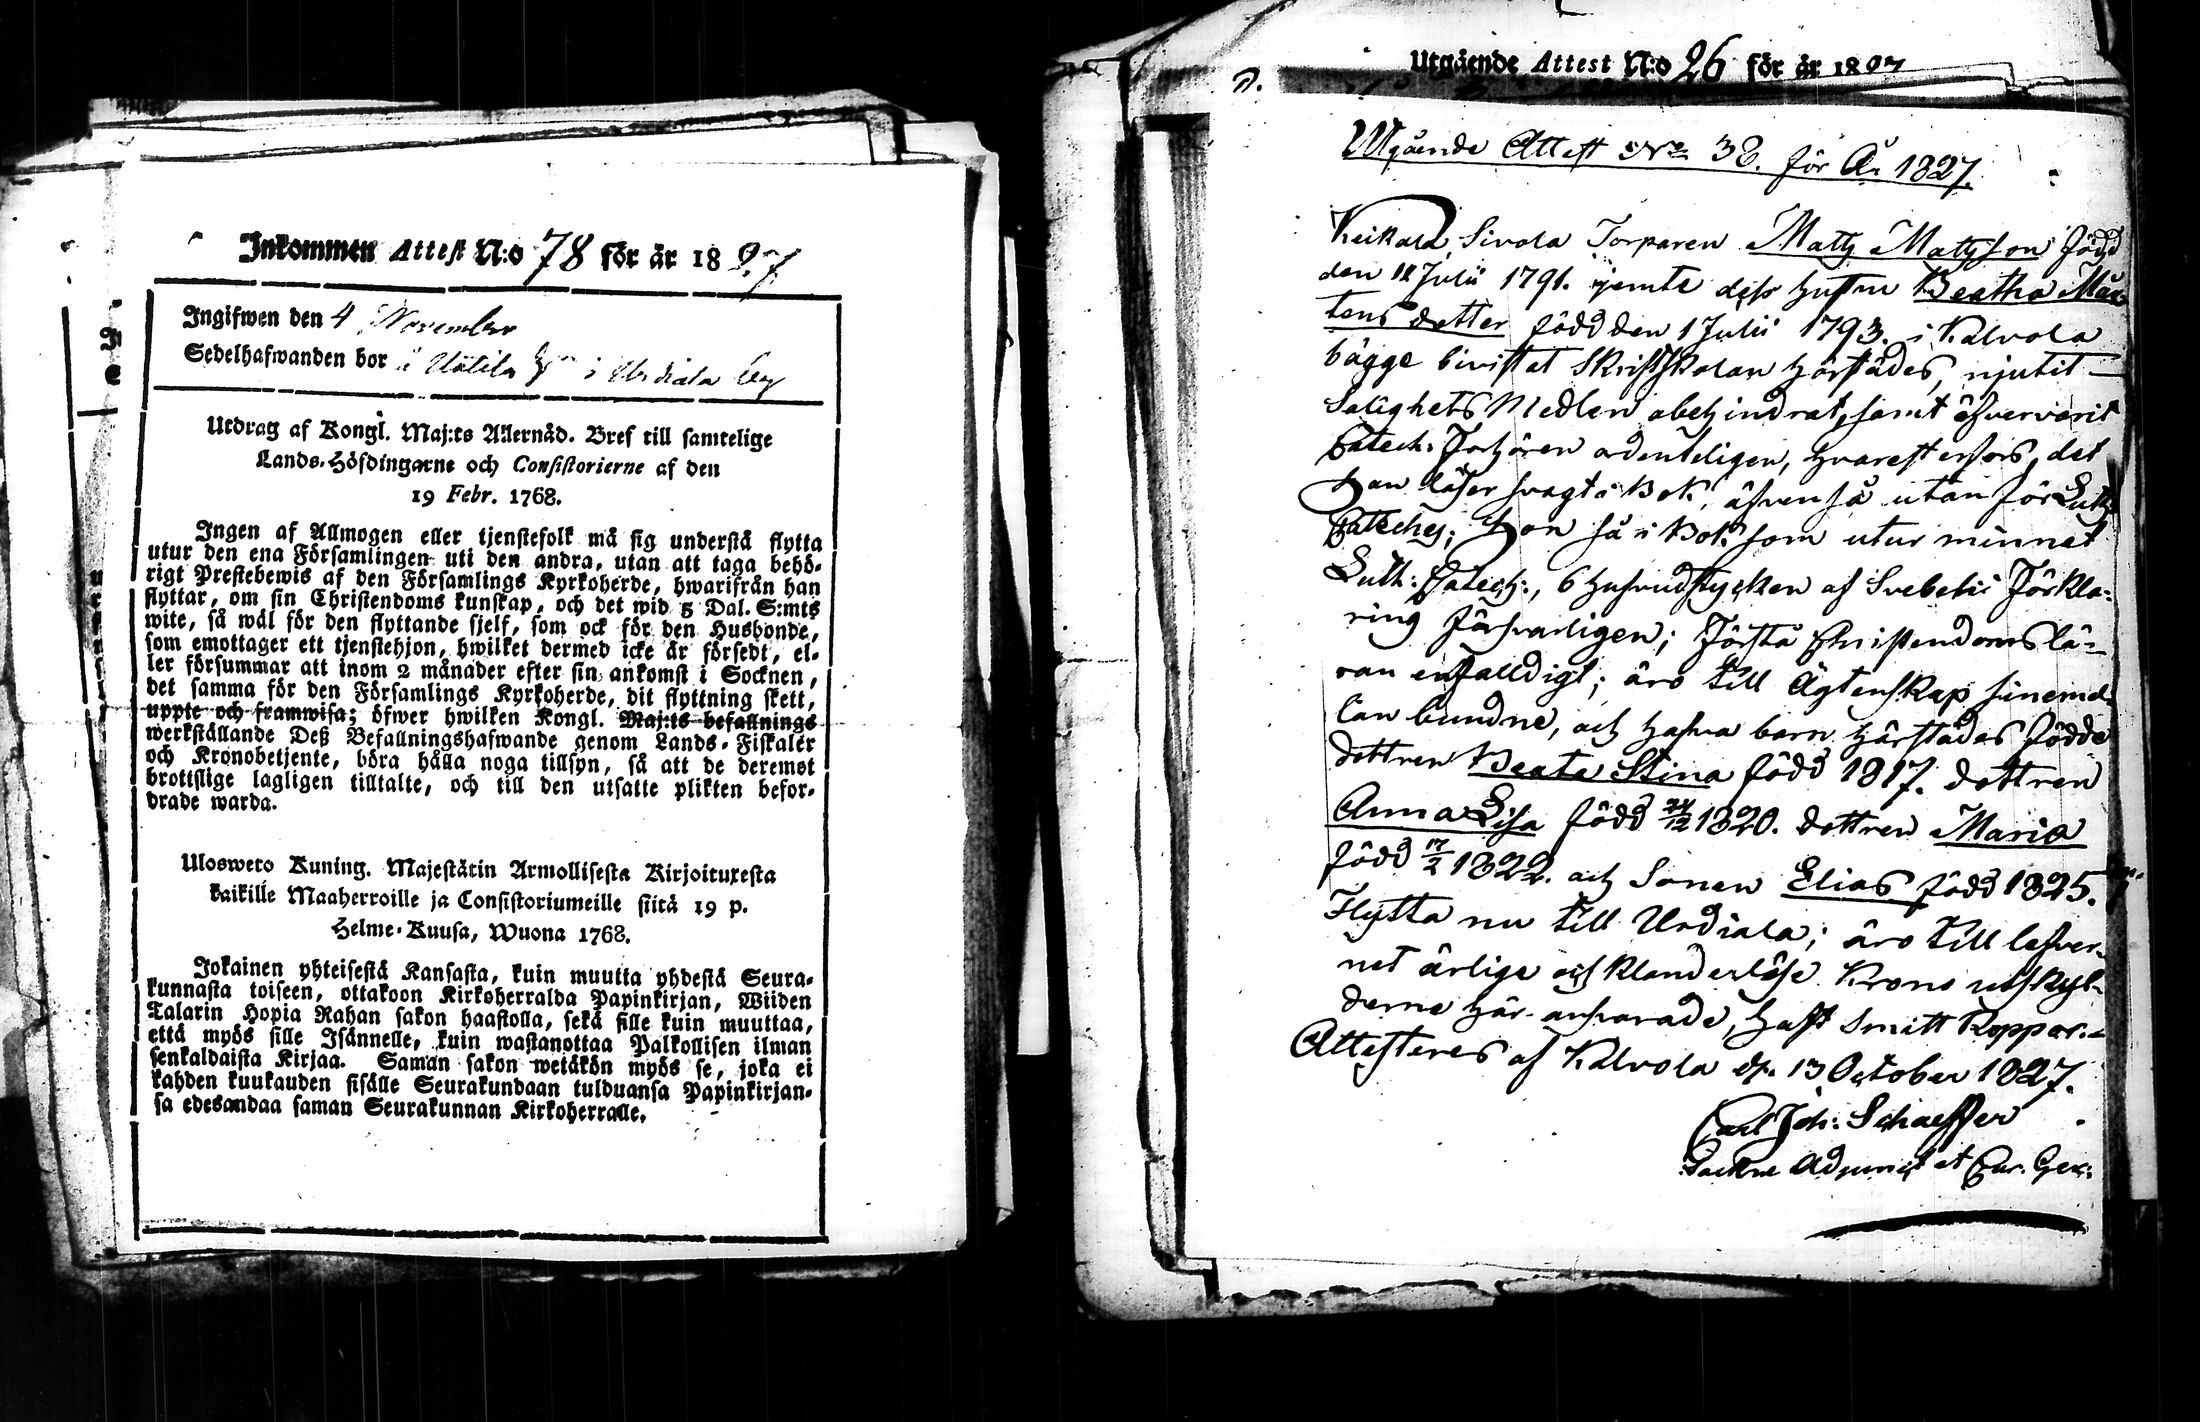 Inkommen Attest N:o 78 för år 1827
Ingifwen den 4 November
Sedelhafwanden bor å Uötila i Urdiala by
Utdrag af Kongl. Maj:ts Allernåd. Bref till samtelige
Lands-Höfdingarne och Consistorierne af den
19 Febr. 1768.
Ingen af Allmogen eller tjenstefolk må sig understå flytta
utur den ena Församlingen uti den andra, utan att taga behö-
rigt Prestebewis af den Församlings Kyrkoherde, hwarifrån han
flyttar, om sin Christendoms kunskap, och det wid 5 Dal. S:mts
wite, så wäl för den flyttande sjelf, som ock för den Husbonde,
som emottager ett tjenstehjon, hwilket dermed icke är försedt, el-
ler försummar att inom 2 månader efter sin ankomst i Socknen,
det samma för den Församlings Kyrkoherde, dit flyttning skett,
uppte och framwisa; öfwer hwilken Kongl. Maj:ts befallnings
werkställande Deß Befallningshafwande genom Lands-Fiskaler
och Kronobetjente, böra hålla noga tillsyn, så att de deremot
brottslige lagligen tilltalte, och till den utsatte plikten befor-
drade warda.
Ulosweto Kuning. Majestätin Armollisesta Kirjoituxesta
kaikille Maaherroille ja Consistoriumeille siitä 19 p.
Helme-Kuusa, Wuona 1768.
Jokainen yhteisestä Kansasta, kuin muutta yhdestä Seura-
kunnasta toiseen, ottakoon Kirkoherralda Papinkirjan, Wiiden
Talarin Hopia Rahan sakon haastolla, sekä sille kuin muuttaa,
että myös sille Isännelle, kuin wastanottaa Palkollisen ilman
senkaldaista Kirjaa. Saman sakon wetäkön myös se, joka ei
kahden kuukauden sisälle Seurakundaan tulduansa Papinkirjan-
sa edesandaa saman Seurakunnan Kirkoherralle.
Utgående Attest N:o 26 för år 1827
Utgående Attest No 38. för År 1827.
Keikala Sivola Torparen Matts Mattsson född
den 18 Julii 1791. jemte dess hustru Beatha Mår-
tens dotter född den 1 Julii 1793. i Kalvola
bägge bivistat Skriftskolan härstädes, njutit
Salighets Medlen obehindrat, samt öfvervarit
Catech: Förhören ordenteligen, hvarest erfors, det
han läser svagt i Bok, äfven så utan för Luth:
Cateches; hon så i Bok som utur minnet
Luth: Catech:, 6 hufvudstycken af Svebelii Förkla-
ring försvarligen; Förstå Christendoms lä-
ran enfalldigt; äro till Ägtenskap sinemel-
lan bundne, och hafva barn härstädes födde
dottren Beata Stina född 1817. dottren
Anna Lisa född 24/12 1820. dottren Maria
född 17/2 1822. och Sonen Elias född 1825.
Flytta nu till Urdiala; äro till lefver-
net ärlige och klanderlöse Krono utskyl-
derne här ansvarade, haft Smitt Koppor.
Attesteres af Kalvola d. 13 October 1827.
Carl Joh: Schaeffer
Sockne Adjunct et Cur. Ger: